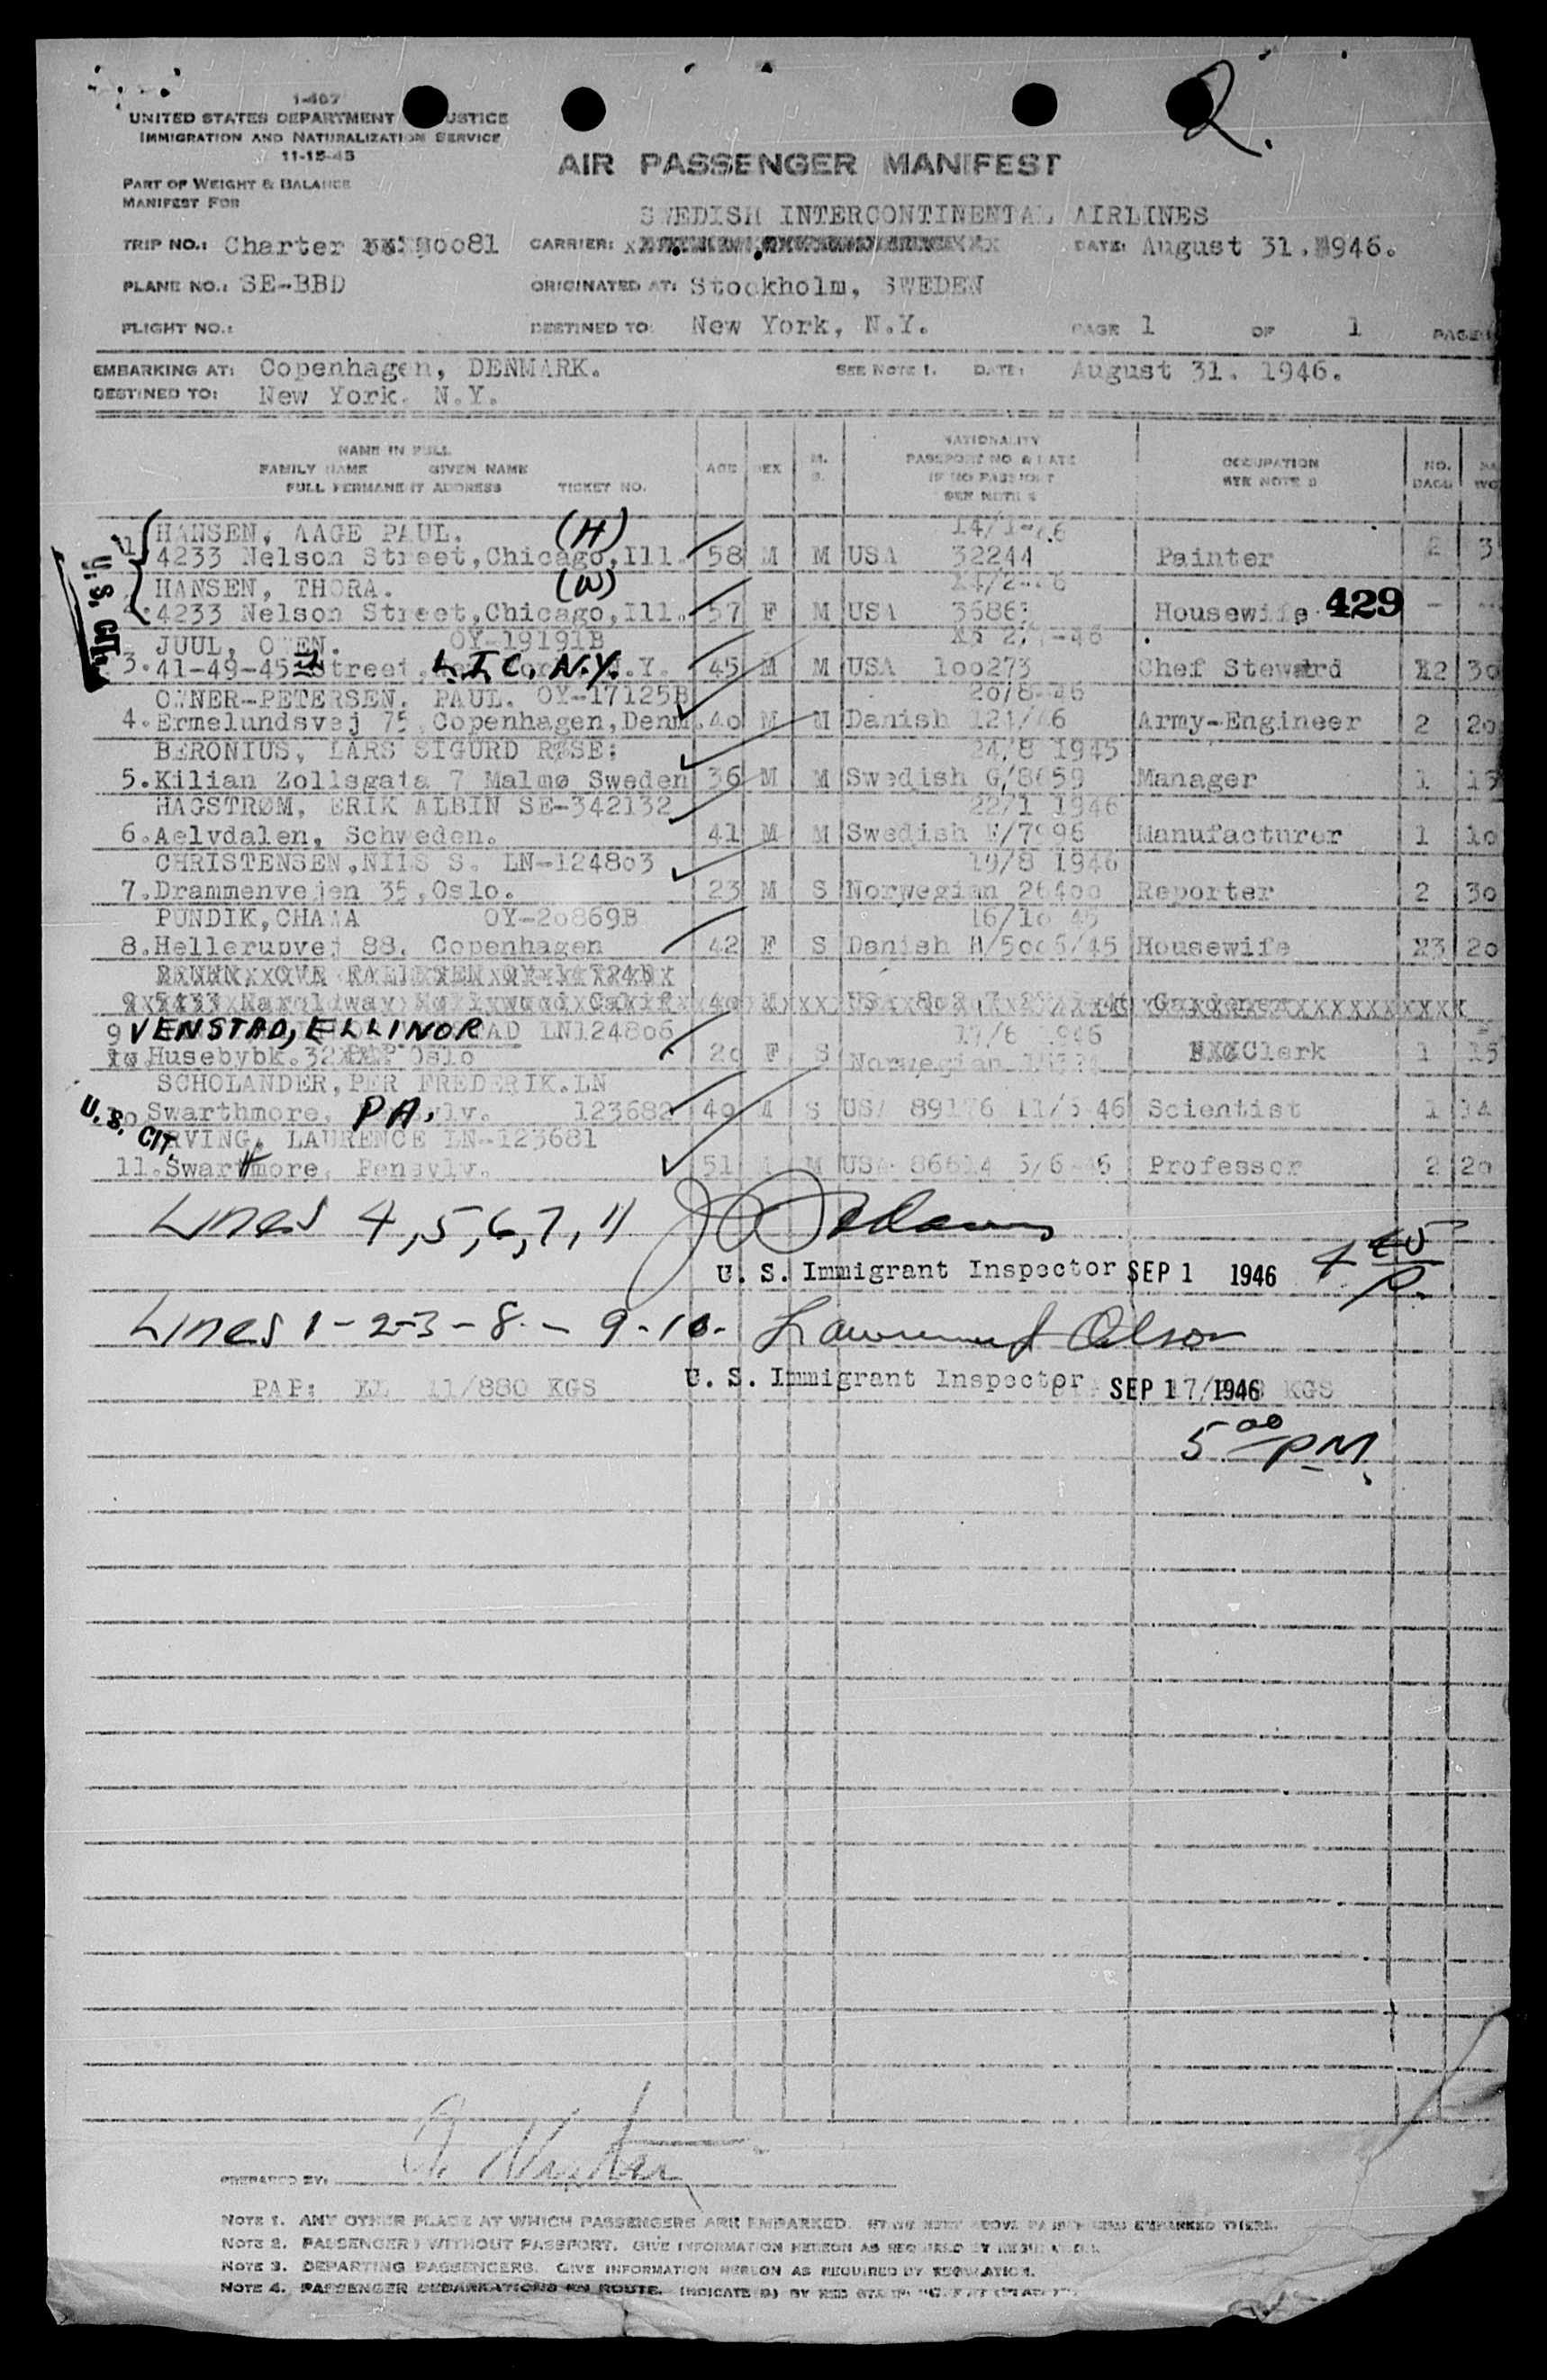 2.
1-407
UNITED STATES DEPARTMENT USTICE
IMMIGRATION AND NATURALIZATION SERVICE
11-15-45
AIR PASSENGER MANIFEST
PART OF WEIGHT & BALANCE
MANIFEST FOR
SWEDISH INTERCONTINENTAL AIRLINES
TRIP NO.: Charter 0081 CARRIER: DATE: August 31. 1946.
PLANE NO.: SE-BBD ORIGINATED AT: Stockholm, SWEDEN
FLIGHT NO.: DESTINED TO: New York, N.Y. PAGE 1 OF 1 PAGE
EMBARKING AT: Copenhagen, DENMARK. SEE NOTE 1. DATE: August 31. 1946.
DESTINED TO: New York. N.Y.
NAME IN FULL
FAMILY NAME GIVEN NAME
FULL PERMANENT ADDRESS TICKET NO.
AGE SEX M. S.
NATIONALITY
PASSPORT NO. & DATE
IF NO PASSPORT
SEE NOTE 2
OCCUPATION
SEE NOTE 3
NO.
U.S. CIT.
HANSEN, AAGE PAUL. (H)
1 4233 Nelson Street, Chicago, Ill. 58 M M USA 32244 Painter 2 3
HANSEN, THORA. (W)
4233 Nelson Street, Chicago, Ill. 57 F M USA Housewife 429 - -
JUUL, OY-19191B
3. 41-49-45 Street, L.I.C., N.Y. 45 M M USA 100273 Chef Steward 2 30
OWNER-PETERSEN. PAUL. OY-17125B 20/8-46
4. Ermelundsvej 75, Copenhagen, Denm. 40 M M Danish Army-Engineer 2 20
BERONIUS, LARS SIGURD RØSE: 24/8 1945
5. Kilian Zollsgata 7 Malmø Sweden 36 M M Swedish G/8659 Manager 1 15
HAGSTRØM, ERIK ALBIN SE-342132 22/1 1946
6. Aelvdalen, Schweden. 41 M M Swedish Manufacturer 1 10
CHRISTENSEN, NILS S. LN-124803 19/8 1946
7. Drammenvejen 35, Oslo. 23 M S Norwegian 26400 Reporter 2 30
PUNDIK, OY-20869B
8. Hellerupvej 88. Copenhagen 42 F S Danish Housewife 3 20
9 VENSTAD, ELLINOR LN124806
Husebybk. 32 Oslo 20 F S Norwegian Clerk 1 15
SCHOLANDER, PER FREDERIK. LN
U.S. CIT. Swarthmore, PA. 123682 40 M S USA Scientist 1
IRVING, LAURENCE LN-123681
11. Swarthmore, Pensylv. 51 M USA Professor 2 20
Lines 4, 5, 6, 7, 11
U. S. Immigrant Inspector SEP 1 1946
Lines 1-2-3-8-9-10- Lawrence Olson
PAP: 11/880 KGS U. S. Immigrant Inspector SEP 1 1946 KGS
5 00 PM.
PREPARED BY:
NOTE 1. ANY OTHER PLACE AT WHICH PASSENGERS ARE EMBARKED. EMBARKED THERE.
NOTE 2. PASSENGERS WITHOUT PASSPORT. GIVE INFORMATION HEREON AS REQUIRED BY
NOTE 3. DEPARTING PASSENGERS. GIVE INFORMATION HEREON AS REQUIRED BY REGULATION.
NOTE 4. PASSENGER DEBARKATIONS EN ROUTE. INDICATE BY RED